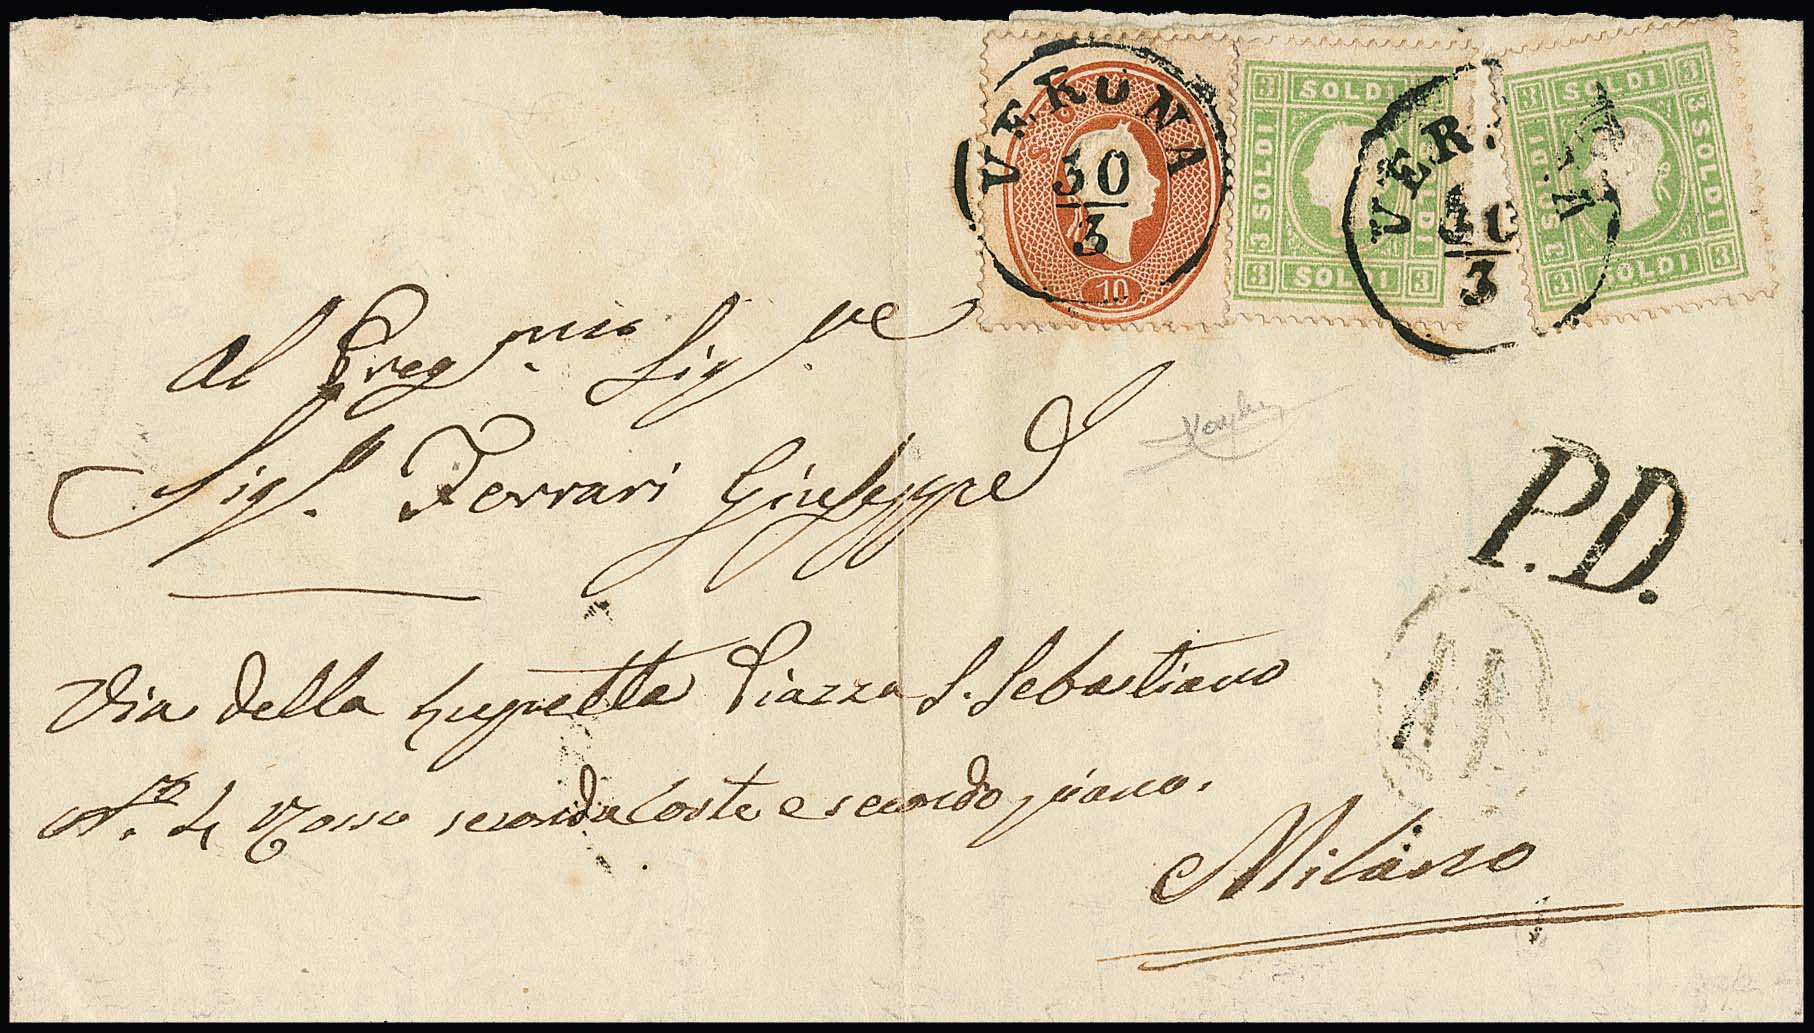 VERONA
30
3
10
3 SOLDI 3
SOLDI
SOLDI
3 SOLDI 3
VER
30
3
3 SOLDI 3
SOLDI
3 SOLDI
3 SOLDI 3
Al Preg.mio Sig.re
Sig.r Ferrari Giuseppe
P.D.
Via della Lupetta Piazza S. Sebastiano
N.ro 4 Rosso seconda Corte e secondo piano.
Milano